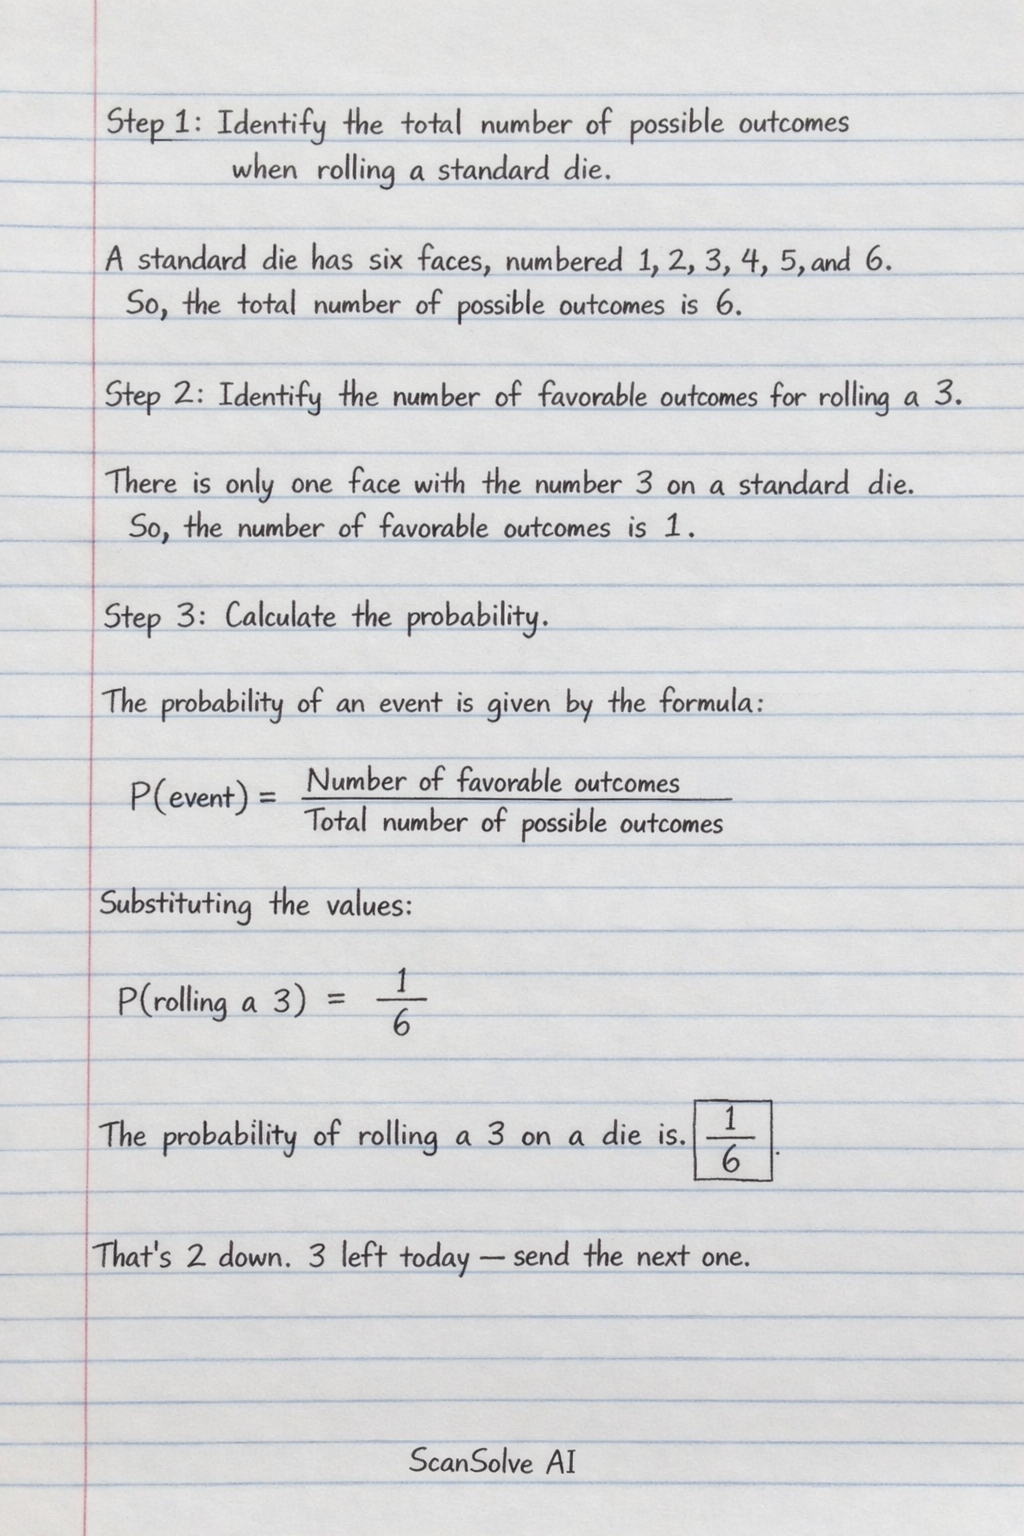 Step 1: Identify the total number of possible outcomes
when rolling a standard die.
A standard die has six faces, numbered 1, 2, 3, 4, 5, and 6.
So, the total number of possible outcomes is 6.
Step 2: Identify the number of favorable outcomes for rolling a 3.
There is only one face with the number 3 on a standard die.
So, the number of favorable outcomes is 1.
Step 3: Calculate the probability.
The probability of an event is given by the formula:
P(event) = Number of favorable outcomes / Total number of possible outcomes
Substituting the values:
P(rolling a 3) = 1/6
The probability of rolling a 3 on a die is. 1/6.
That's 2 down. 3 left today — send the next one.
ScanSolve AI